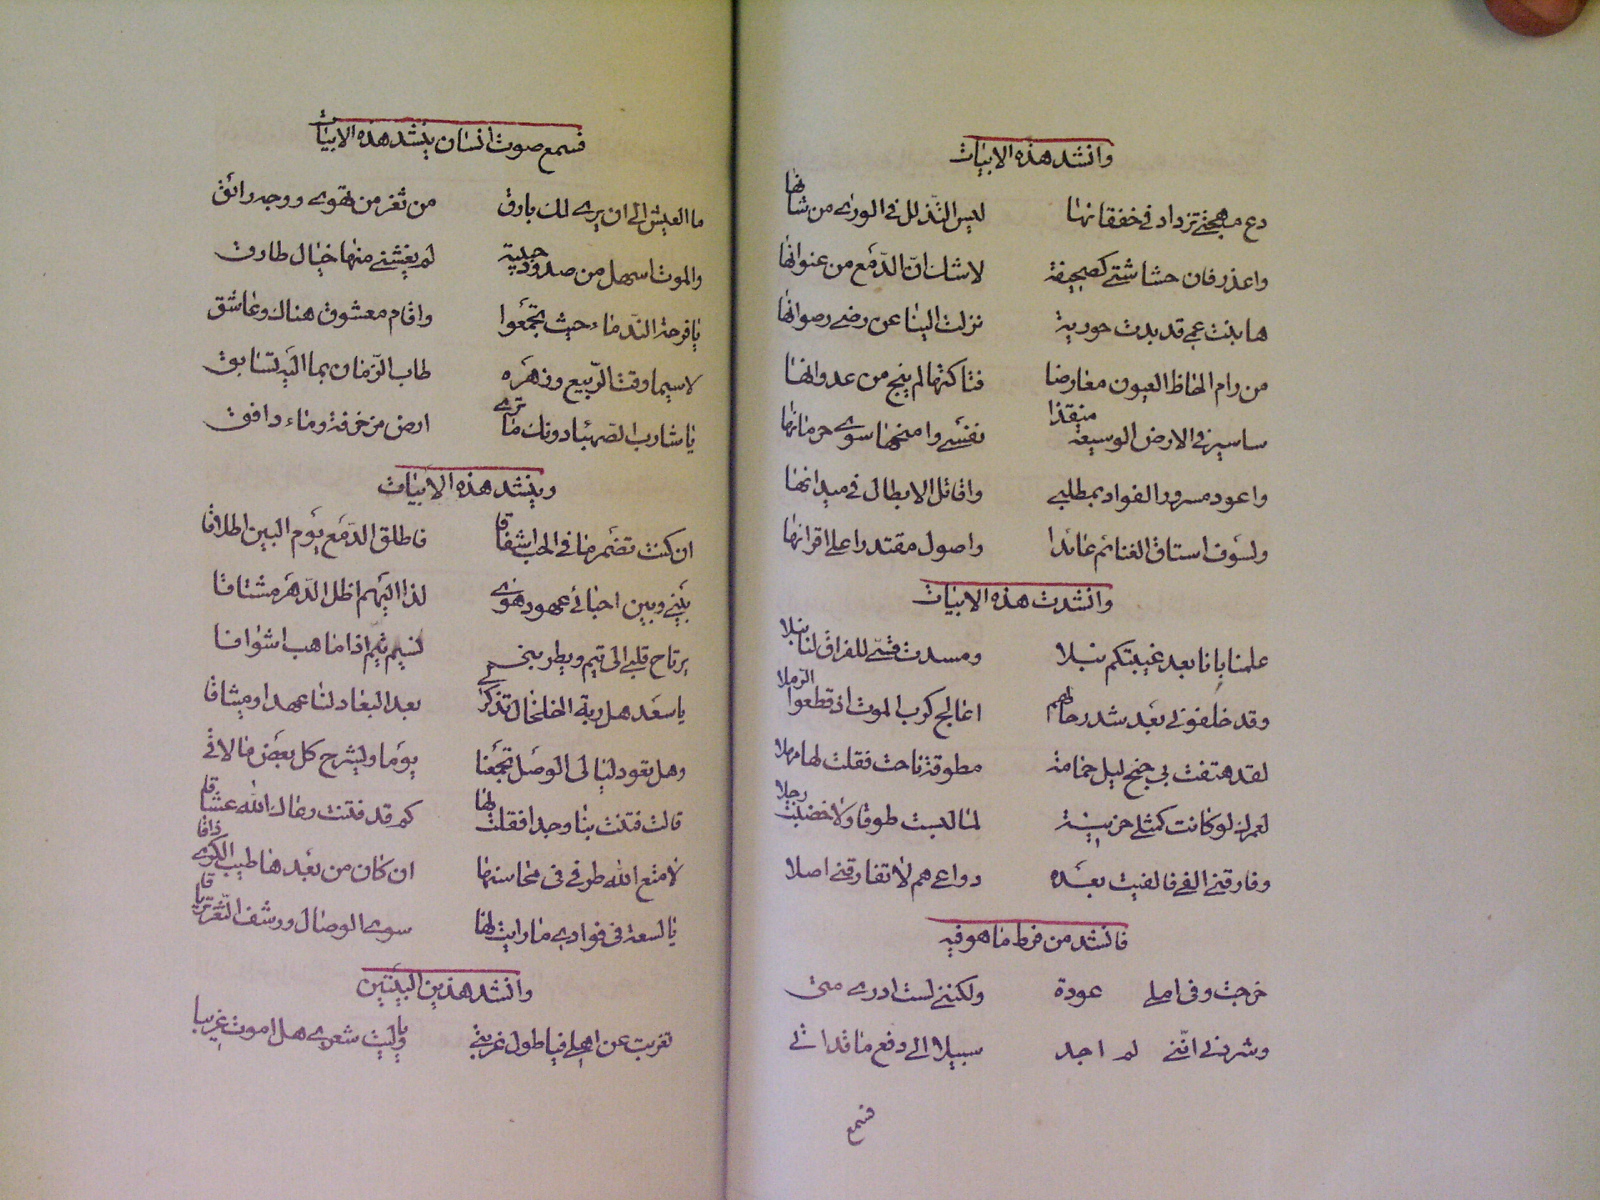 وانشد هذه الابيات
دع مهجتي تزداد في خفقانها ليس التذلل في الورى من شانها
واعذر فان حشاشتي كصحيفة لا شك ان الدمع من عنوانها
ها بنت عمي قد بدت حورية نزلت الينا عن رضى رضوانها
من رام الحاظ العيون معارضا فتاكتها لم ينج من عدوانها
ساسير في الارض الوسيعة منقذا نفسي وامنحها سوى حرمانها
واعود مسرور الفواد بمطلبي واقاتل الابطال في ميدانها
ولسوف استاق الغنائم عائدا واصول مقتدرا على اقرانها
وانشدت هذه الابيات
علمنا بانا بعد غيبتكم نبلا ومسدت قسي للفراق لنا نبلا
وقد خلفوني بعد شد رحالهم اعالج كرب الموت اذ قطعوا الرملا
لقد هتفت بي جنح ليل حمامة مطوقة ناحت فقلت لها مهلا
لعمرك لو كانت كمثلي حزينة لما لبست طوقا ولا خضبت رجلا
وفارقني الفي فالفيت بعده دواعي هم لا تفارقني اصلا
فانشد من فرط ما هو فيه
خرجت وفي املي عودة ولكنني لست ادري متى
وشردني انني لم اجد سبيلا الى دفع ما قد اتى
فسمع
فسمع صوت انسان ينشد هذه الابيات
ما العيش الى ان يرى لك بارق من ثغر من تهوى ووجه رائق
والموت اسهل من صدود حبيبة لم يغشني منها خيال طارق
يا فرحة الندماء حيث تجمعوا واقام معشوق هناك وعاشق
لا سيما وقت الربيع وزهره طاب الزمان بما اليه تسابق
يا شارب الصهباء دونك ما ترى ارض مزخرفة وماء دافق
وينشد هذه الابيات
ان كنت تضمر ما في الحب اشفاقا فاطلق الدمع يوم البين اطلاقا
بيني وبين احبائي عهود هوى لذا اليهم اظل الدهر مشتاقا
يرتاح قلبي الى تيم ويطربني نسيم تيم اذا ما هب اشواقا
يا سعد هل ربة الخلخال تذكرني بعد البعاد لنا عهدا وميثاقا
وهل تعود ليالي الوصل تجمعنا يوما ويشرح كل بعض ما لاقى
قالت فتنت بنا وجدا فقلت لها كم قد فتنت رعاك الله عشاقا
لا متع الله طرفي في محاسنها ان كان من بعدها طيب الكرى ذاقا
يا لسعة في فوادي ما رايت لها سوى الوصال ورشف الثغر ترياقا
وانشد هذين البيتين
تغربت عن اهلي فيا طول غربتي ويا ليت شعري هل اموت غريبا